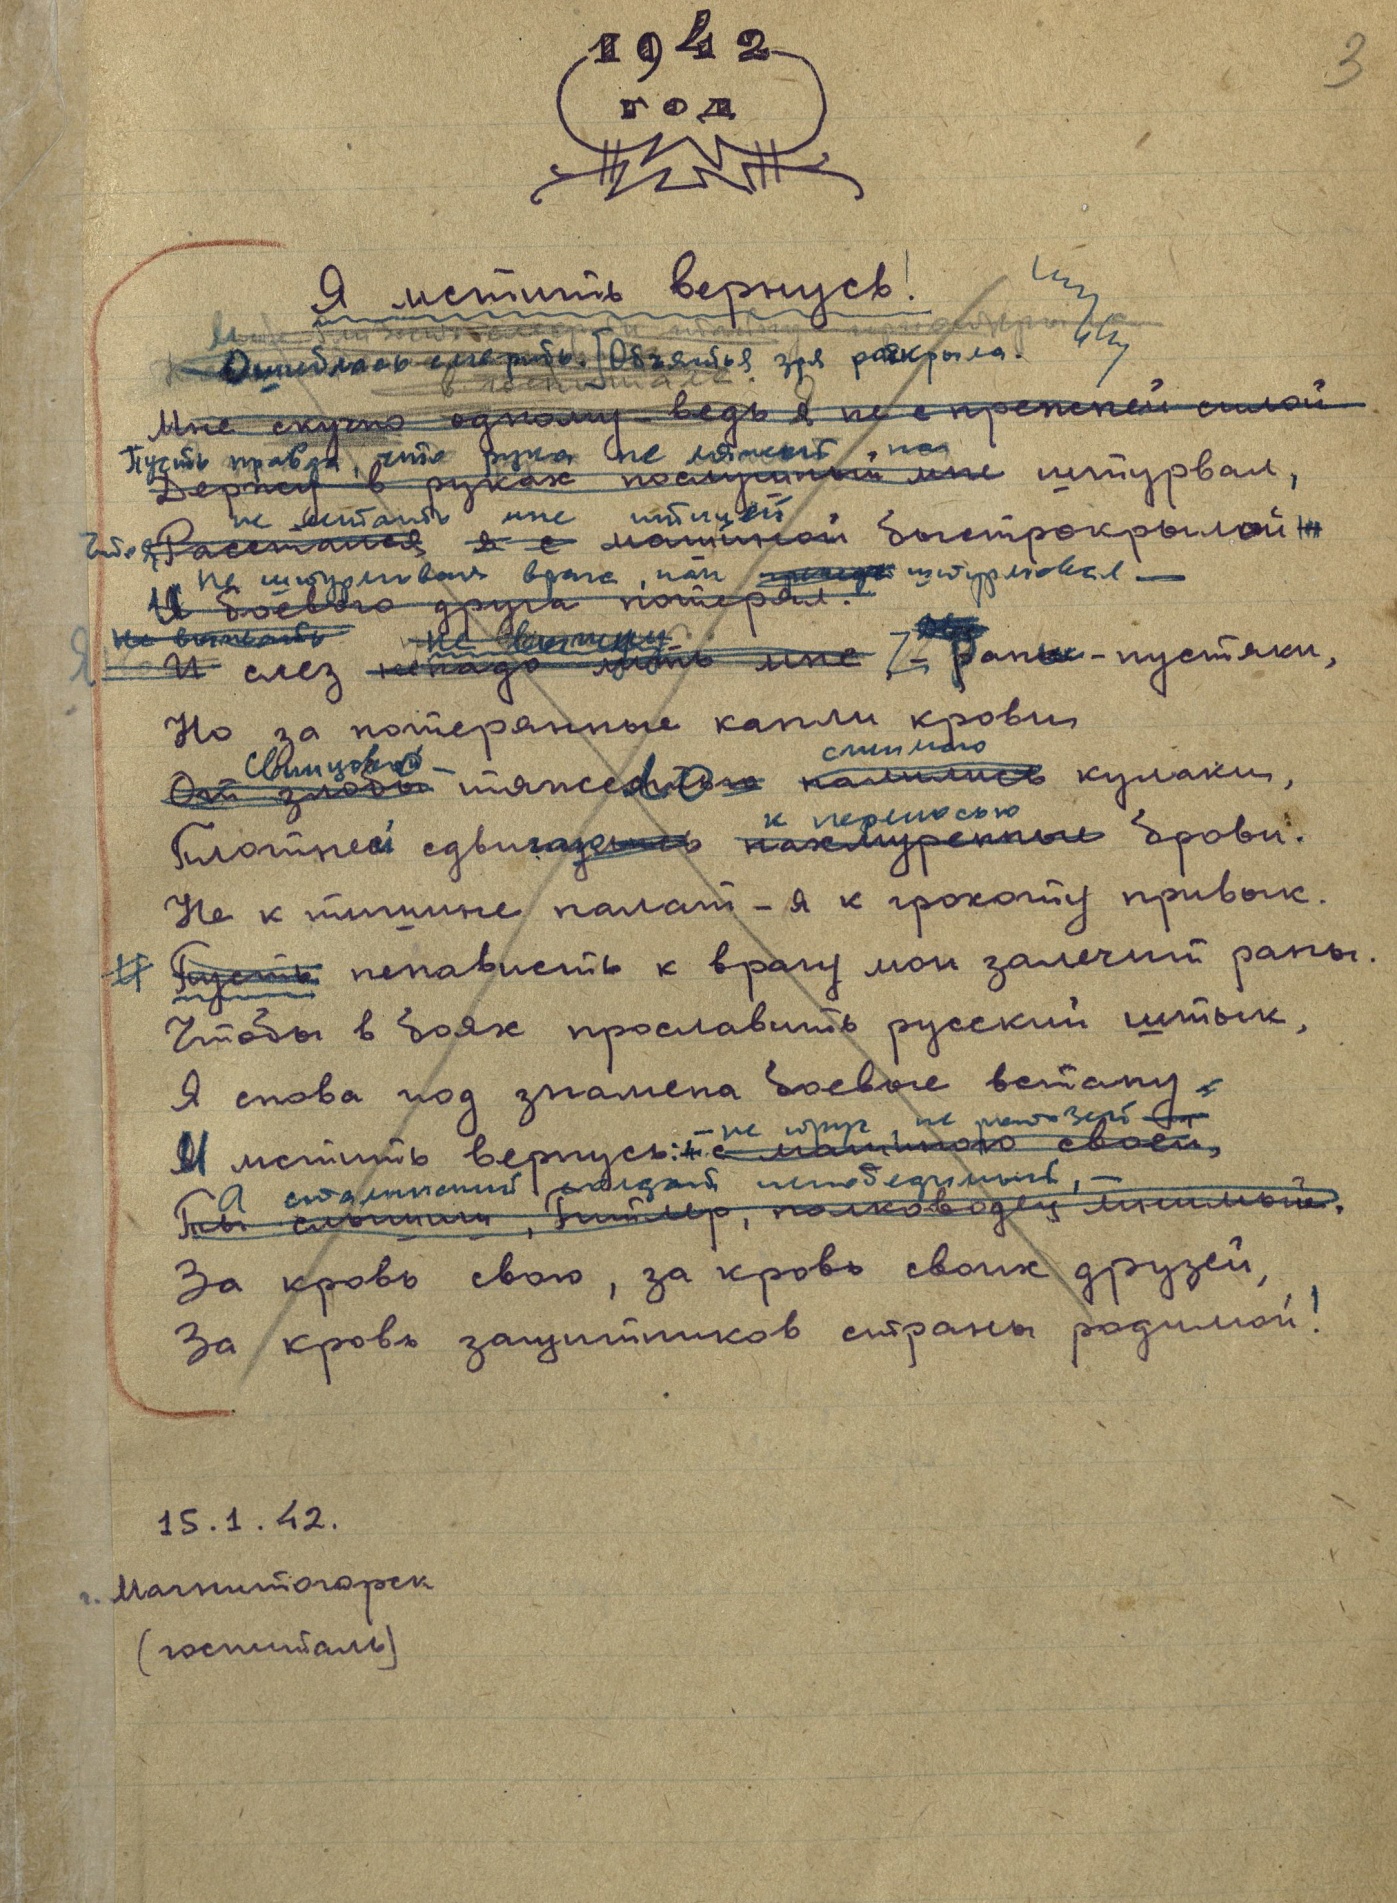 1942
год
3
Я мстить вернусь!
Ошиблась смерть. Объятья зря раскрыла.
в госпитале.
Мне скучно одному – ведь я не с прежней силой
Пусть правда, что рука не ляжет на
Держу в руках послушный мне штурвал,
не летать мне птицей
Что я Расстался я с машиной быстрокрылой
Не штурмовать врага, как прежде штурмовал —
И боевого друга потерял.
Не выжать не выжму
Я И слез ненадо лить мне, – раны – пустяки,
Но за потерянные капли крови
Свинцовой сжимаю
От злобы тяжестью налились кулаки,
к переносью
Плотней сдвигаю нахмуренные брови.
Не к тишине палат – я к грохоту привык.
Пусть ненависть к врагу мои залечит раны.
Чтобы в боях прославить русский штык,
Я снова под знамена боевые встану
– не трус, не ротозей –
И мстить вернусь: с машиною своей,
А сталинский солдат непобедимый, –
Ты слышишь, Гитлер, полководец мнимый.
За кровь свою, за кровь своих друзей,
За кровь защитников страны родимой!
15.1.42.
г. Магнитогорск
(госпиталь)